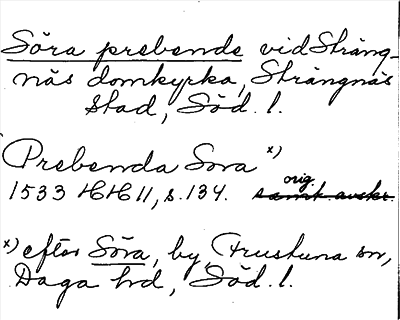 Söra prebende vid Sträng-
näs domkyrka, Strängnäs
stad, Söd. l.
"Prebenda Sora" x)
orig.
1533 HH II, s. 134. samt. avskr.
x) efter Söra, by, Frustuna sn,
Daga hd, Söd. l.